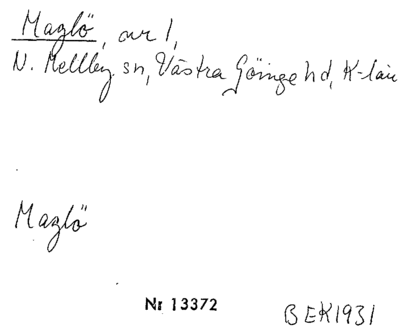 Maglö, avr 1,
N. Mellby sn, Västra Göinge hd, K-län
Maglö
Nr 13372
BEK1931